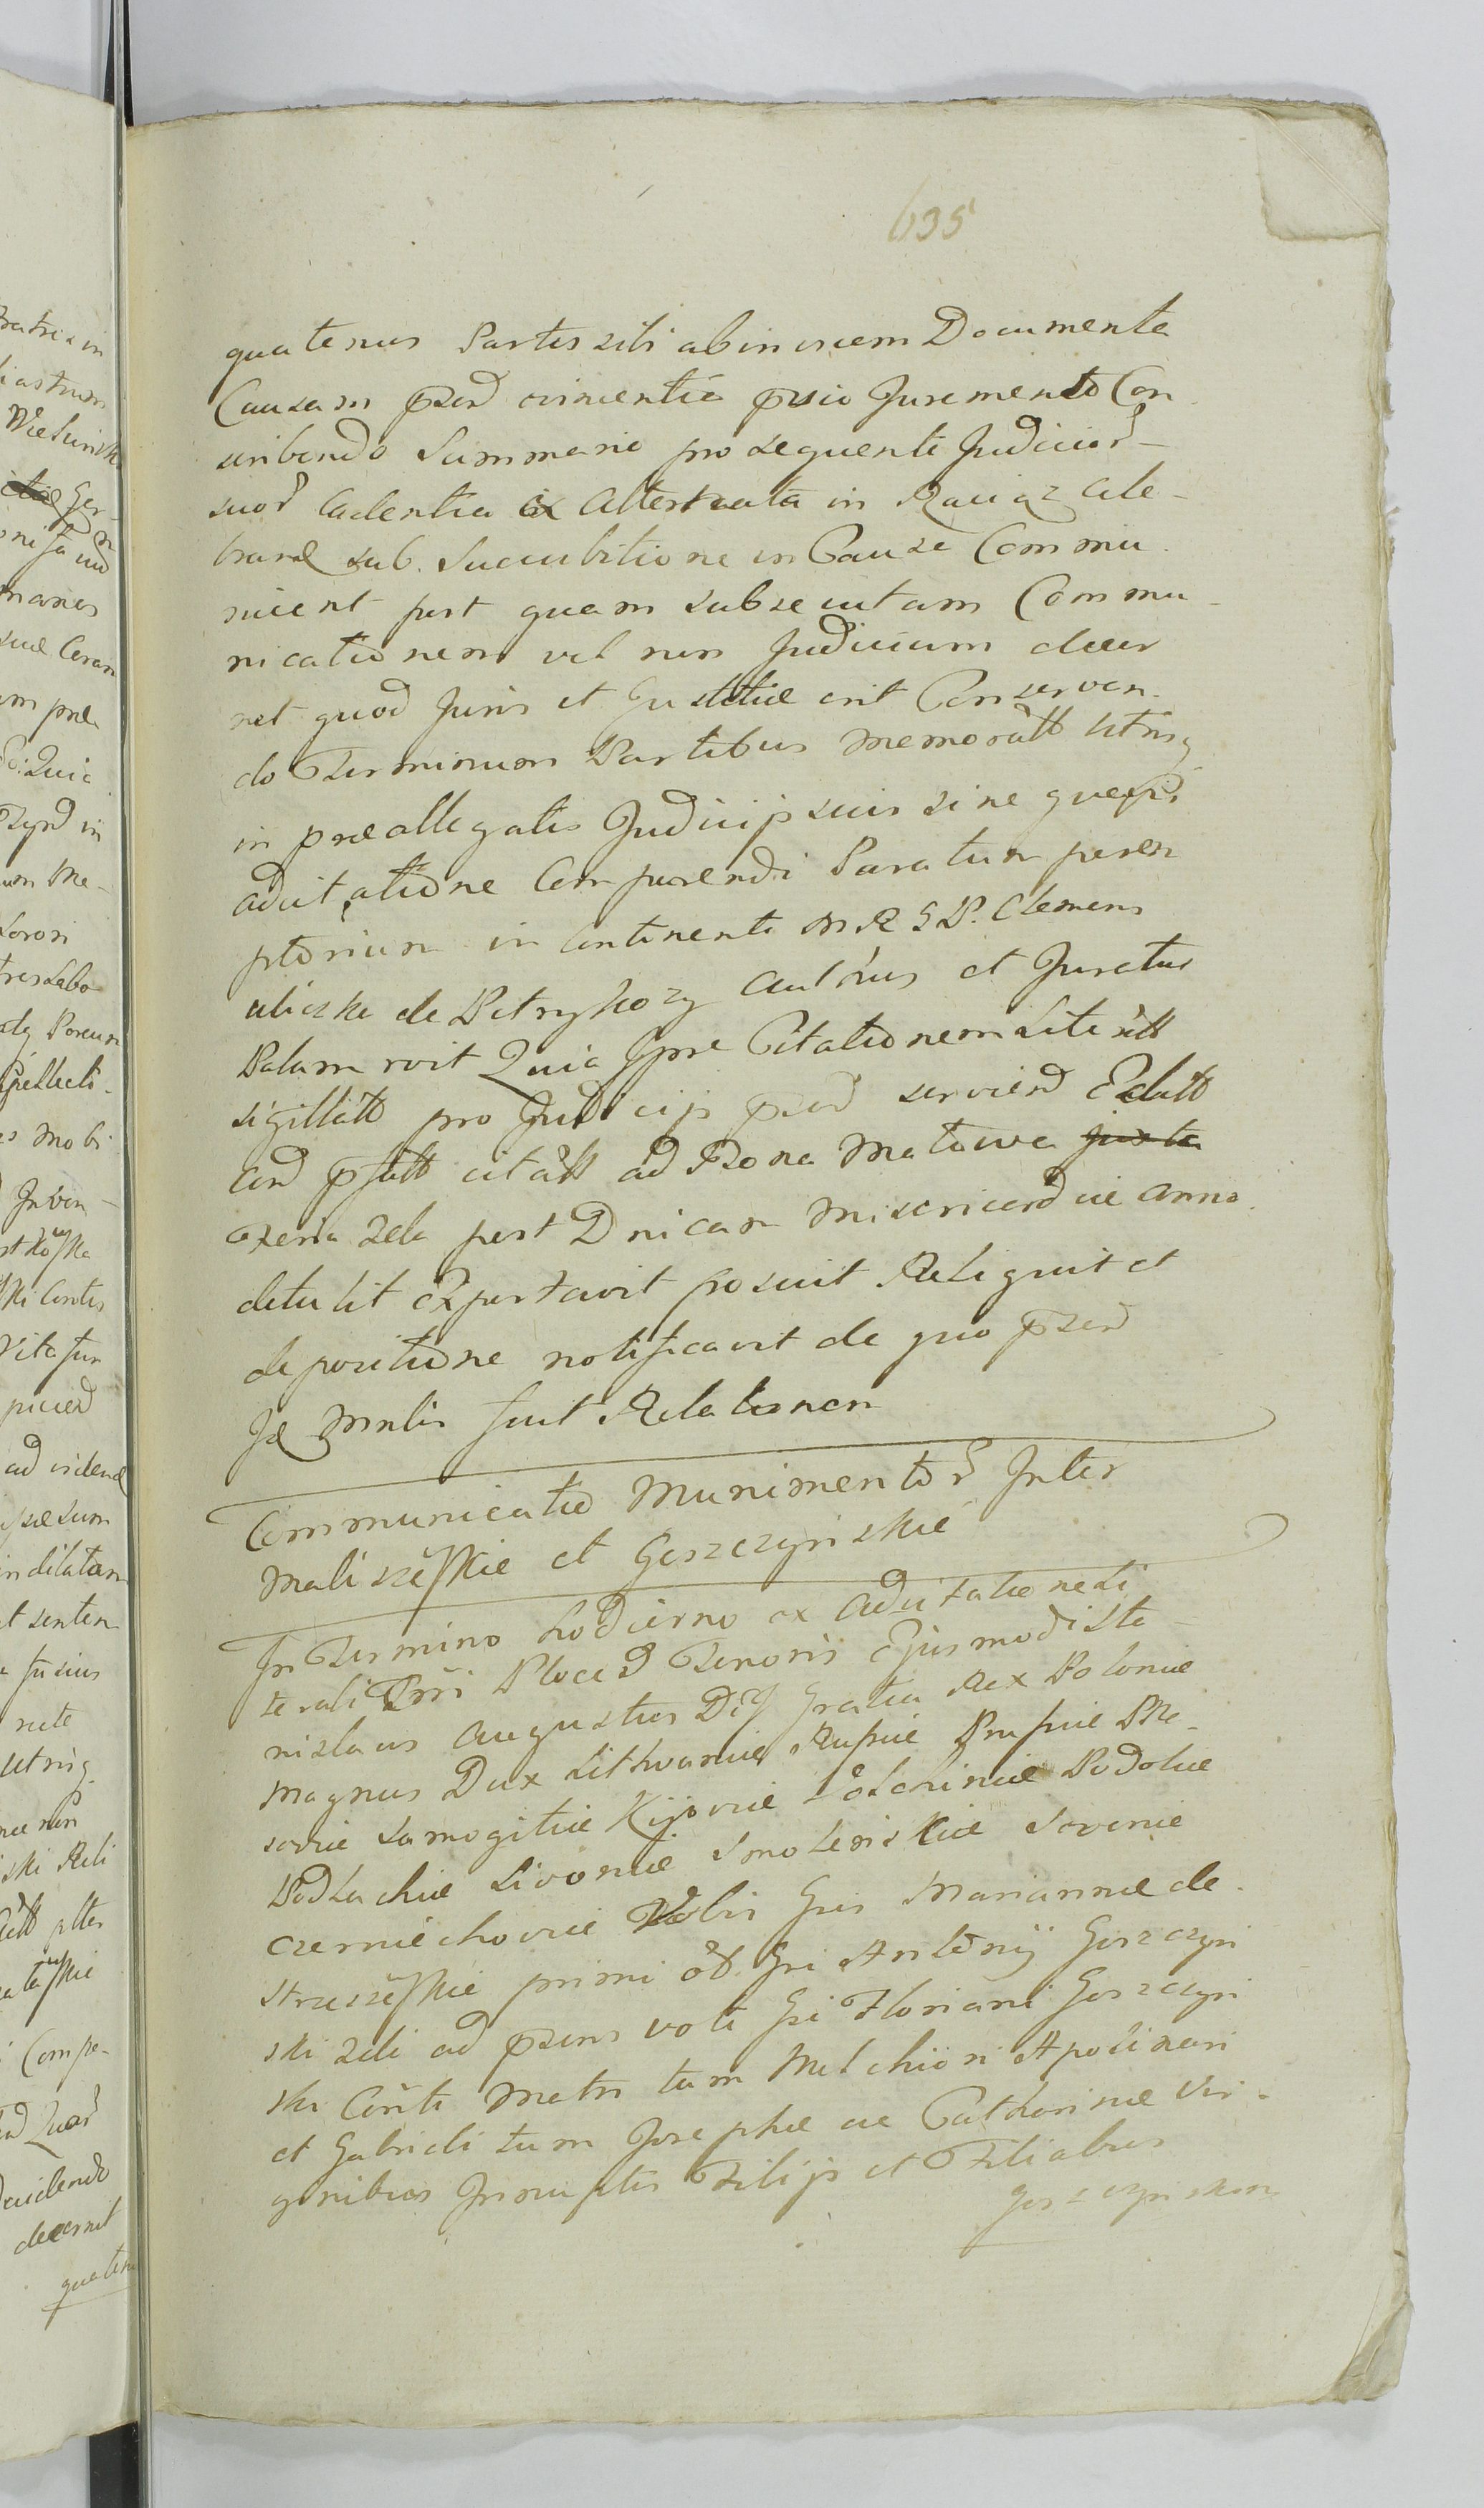 635
quatenus Partes sibi abinvicem Documenta
Causam pzend vincentia pvio Juramento Con
scribendo Summario pro sequenti Judicior
suor Cadentia ex Alternata in Raciąz cele-
brand sub Succubitione in Causa Commu
nicent post quam subsecutam Commu-
nicationem vel non Judicium decer
net quod Juris et Justitiae erit Conservan-
do Terminum Partibus memoratt utrisq
in praeallegatis Judicijs suis sine quavis
adcitatione Comparendi Paratum perem
ptorium in Continenti M R G P. Clemens
de Petrykozy et Juratus
Palam rvit Quia Ipse Citationem Literatt
sigillatt pro Judicijs pzend serviend Edatt
citatt ad Bona Malowa
Feria 2da post Dnicam Misericord ae anno
detulit Exportavit posuit Reliquit et
depositione notificavit de quo pzend
fecit Relationem
Communicatio Munimentor Inter
Maliszewskie et Goszczynskie
In Termino hodierno ex Adcitatione Li
terali Trri Ploced Tenoris Ejusmodi Sta-
nislaus Augustus Dei Gratia Rex Poloniae
Magnus Dux Lithvaniae Russiae Prussiae Ma-
soviae Samogitiae Kijoviae Volchiniae Podoliae
Podlachiae Livoniae Smolenskiae Severiae
Czerniechoviae Vobis Gris Mariannae de
Strzeszewskie primi olt Gri Antonij Goszczyn
ski 2di ad pzens voti Gri Floriani Goszczyn
ski Conti Matri tum Melchiori Apolinari
et Gabrieli tum Josephae ac Catharinae Vir-
ginibus Innuptis Filijs et Filiabus
Goszczynskon